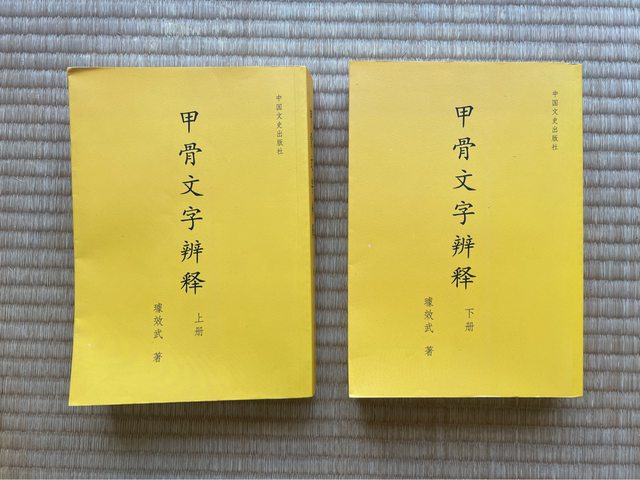 中国文史出版社
甲骨文字辨释
上册
璩效武 著
中国文史出版社
甲骨文字辨释
下册
璩效武 著